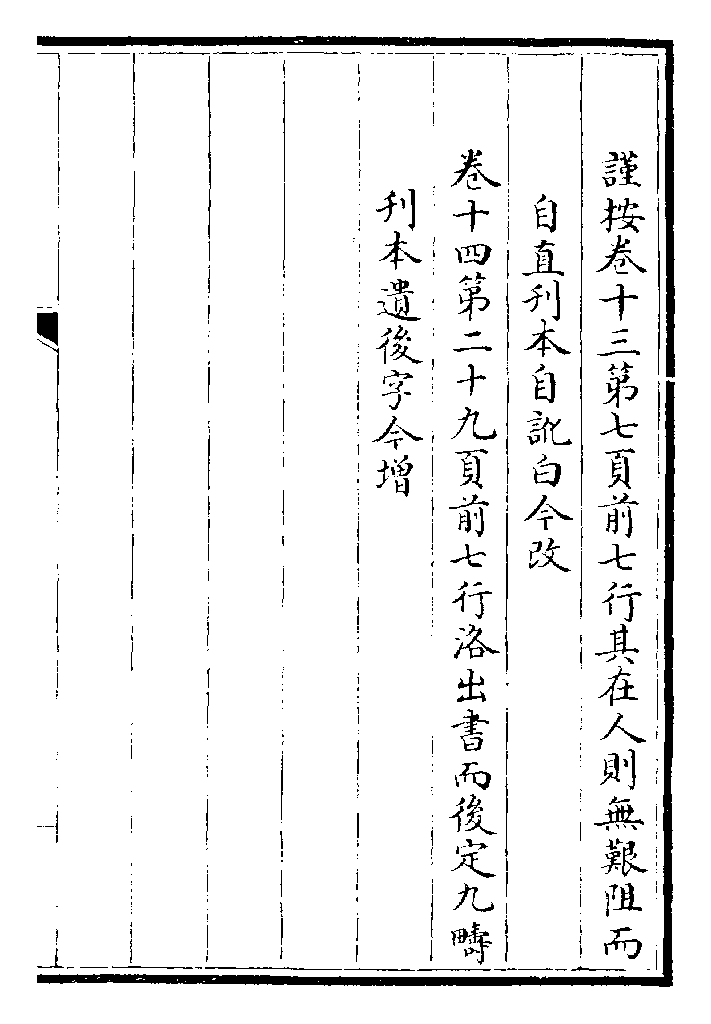 謹按卷十三第七頁前七行其在人則無艱阻而
自直刊本自訛白今改
卷十四第二十九頁前七行洛出書而後定九疇
刊本遺後字今增